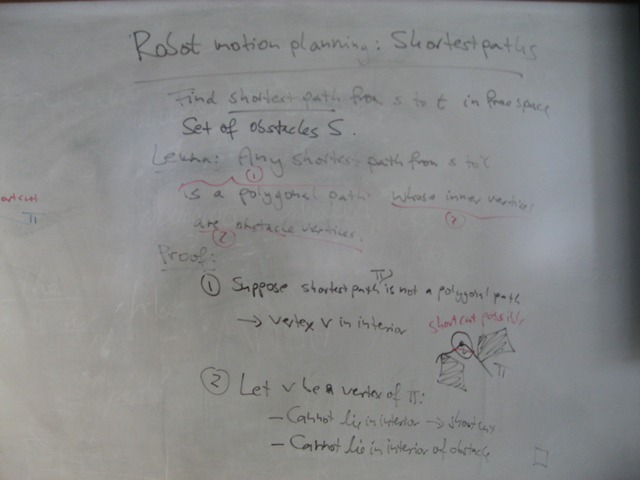 Robot motion planning: Shortest paths
Find shortest path from s to t in free space
Set of obstacles S.
Lemma: Any shortest path from s to t
①
is a polygonal path whose inner vertices
②
are obstacle vertices.
②
ortcut
π
Proof:
① Suppose shortest path π is not a polygonal path
→ vertex v in interior
shortcut possible
π
② Let v be a vertex of π:
- Cannot lie in interior → shortcut
- Cannot lie in interior of obstacle